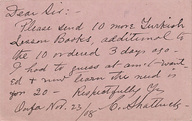 Dear Sir:-
Please send 10 more Turkish
Lesson Books, additional to
the 10 ordered 3 days ago -
I had to guess at am't want-
ed & now learn the need is
for 20 - Respectfully Yrs
Oorfa Nov. 23/08 C. Shattuck -